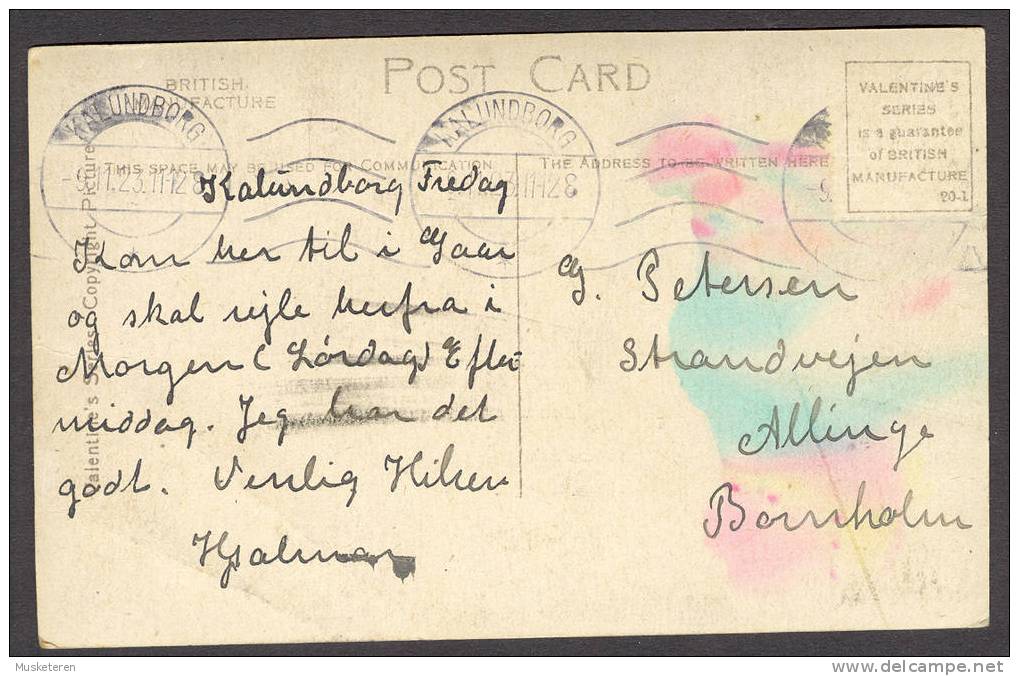 POST CARD
BRITISH
MANUFACTURE
VALENTINE'S
SERIES
is a guarantee
of BRITISH
MANUFACTURE
20-1
KALUNDBORG
-9.11.23.11-12 8
KALUNDBORG
11-12 8
-9.
THIS SPACE MAY BE USED FOR COMMUNICATION
THE ADDRESS TO BE WRITTEN HERE
Valentine's Series Copyright Picture
Kalundborg Fredag
Kom her til i Gaar
og skal rejse herfra i
Morgen (Lördag) Efter
middag. Jeg har det
godt. Venlig Hilsen
Hjalmar
G. Petersen
Strandvejen
Allinge
Bornholm
Musketeren
www.delcampe.net